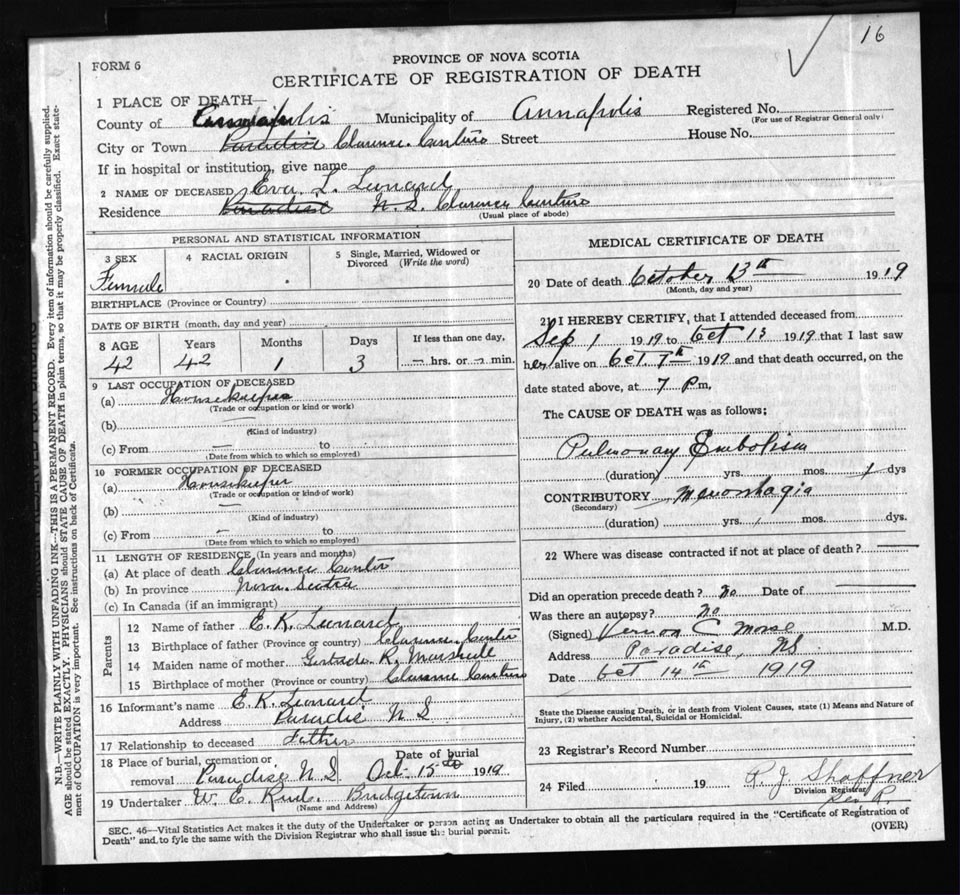 16
FORM 6
PROVINCE OF NOVA SCOTIA
CERTIFICATE OF REGISTRATION OF DEATH
1 PLACE OF DEATH—
County of Annapolis Municipality of Annapolis Registered No.
(For use of Registrar General only)
City or Town Paradise Clarence Centre Street House No.
If in hospital or institution, give name
2 NAME OF DECEASED Eva. L. Leonard
Residence Paradise N.S. Clarence Centre
(Usual place of abode)
PERSONAL AND STATISTICAL INFORMATION
3 SEX 4 RACIAL ORIGIN 5 Single, Married, Widowed or Divorced (Write the word)
Female
BIRTHPLACE (Province or Country)
DATE OF BIRTH (month, day and year)
8 AGE Years Months Days If less than one day,
42 42 1 3 — hrs. or — min.
9 LAST OCCUPATION OF DECEASED
(a) Housekeeper
(Trade or occupation or kind or work)
(b)
(Kind of industry)
(c) From — to
(Date from which to which so employed)
10 FORMER OCCUPATION OF DECEASED
(a) Housekeeper
(Trade or occupation or kind of work)
(b) —
(Kind of industry)
(c) From — to
(Date from which to which so employed)
11 LENGTH OF RESIDENCE (In years and months)
(a) At place of death Clarence Centre
(b) In province Nova. Scotia
(c) In Canada (if an immigrant)
Parents
12 Name of father E. K. Leonard
13 Birthplace of father (Province or country) Clarence Centre
14 Maiden name of mother R. Marshall
15 Birthplace of mother (Province or country) Clarence Centre
16 Informant's name E. K. Leonard
Address Paradise N S
17 Relationship to deceased Father
18 Place of burial, cremation or removal Paradise N S. Date of burial Oct. 15th 1919
19 Undertaker W. E. Bridgetown
(Name and Address)
MEDICAL CERTIFICATE OF DEATH
20 Date of death October 13th 1919
(Month, day and year)
21 I HEREBY CERTIFY, that I attended deceased from
Sep 1 1919 to Oct 13 1919 that I last saw
her alive on Oct 7th 1919 and that death occurred, on the
date stated above, at 7 Pm,
The CAUSE OF DEATH was as follows:
Pulmonary Embolism
(duration) yrs. mos. 1 dys
CONTRIBUTORY Menorrhagia
(Secondary)
(duration) yrs. mos. dys.
22 Where was disease contracted if not at place of death?
Did an operation precede death? No Date of
Was there an autopsy? No
(Signed) Vernon C Morse M.D.
Address Paradise, NS
Date Oct 14th 1919
State the Disease causing Death, or in death from Violent Causes, state (1) Means and Nature of
Injury, (2) whether Accidental, Suicidal or Homicidal.
23 Registrar's Record Number
24 Filed 19 R. J. Shaffner
Division Registrar
SEC. 46—Vital Statistics Act makes it the duty of the Undertaker or person acting as Undertaker to obtain all the particulars required in the "Certificate of Registration of
Death" and to fyle the same with the Division Registrar who shall issue the burial permit.
(OVER)
N.B.—WRITE PLAINLY WITH UNFADING INK—THIS IS A PERMANENT RECORD. Every item of information should be carefully supplied.
AGE should be stated EXACTLY. PHYSICIANS should STATE CAUSE OF DEATH in plain terms, so that it may be properly classified. Exact state-
ment of OCCUPATION is very important. See instructions on back of Certificate.